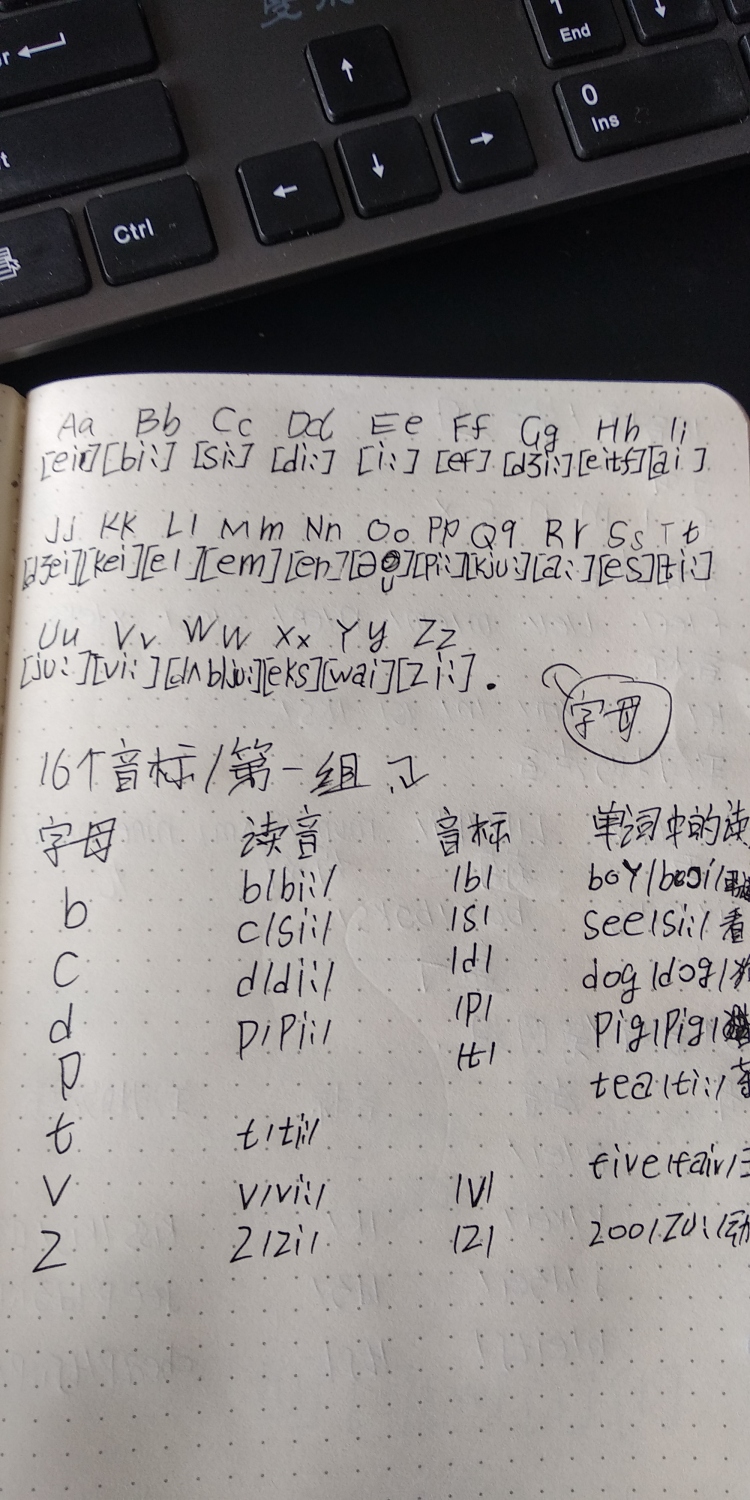 End
0
Ins
Ctrl
Aa Bb Cc Dd Ee Ff Gg Hh Ii
[ei][bi:] [si:] [di:] [i:] [ef] [dʒi:][eitʃ][ai]
Jj Kk Ll Mm Nn Oo Pp Qq Rr Ss Tt
[dʒei][kei][el][em][en][əʊ][pi:][kju:][a:][es][ti:]
Uu Vv Ww Xx Yy Zz
[ju:][vi:][dʌblju:][eks][wai][zi:].
字母
16个音标/第一组
字母 读音 音标 单词中的读
b b/bi:/ /b/ boy/boi/
c c/si:/ /s/ see/si:/看
d d/di:/ /d/ dog/dog/
p p/pi:/ /p/ pig/pig/
t t/ti:/ /t/ tea/ti:/
v v/vi:/ /v/ five/faiv/
z z/zi:/ /z/ zoo/zu:/